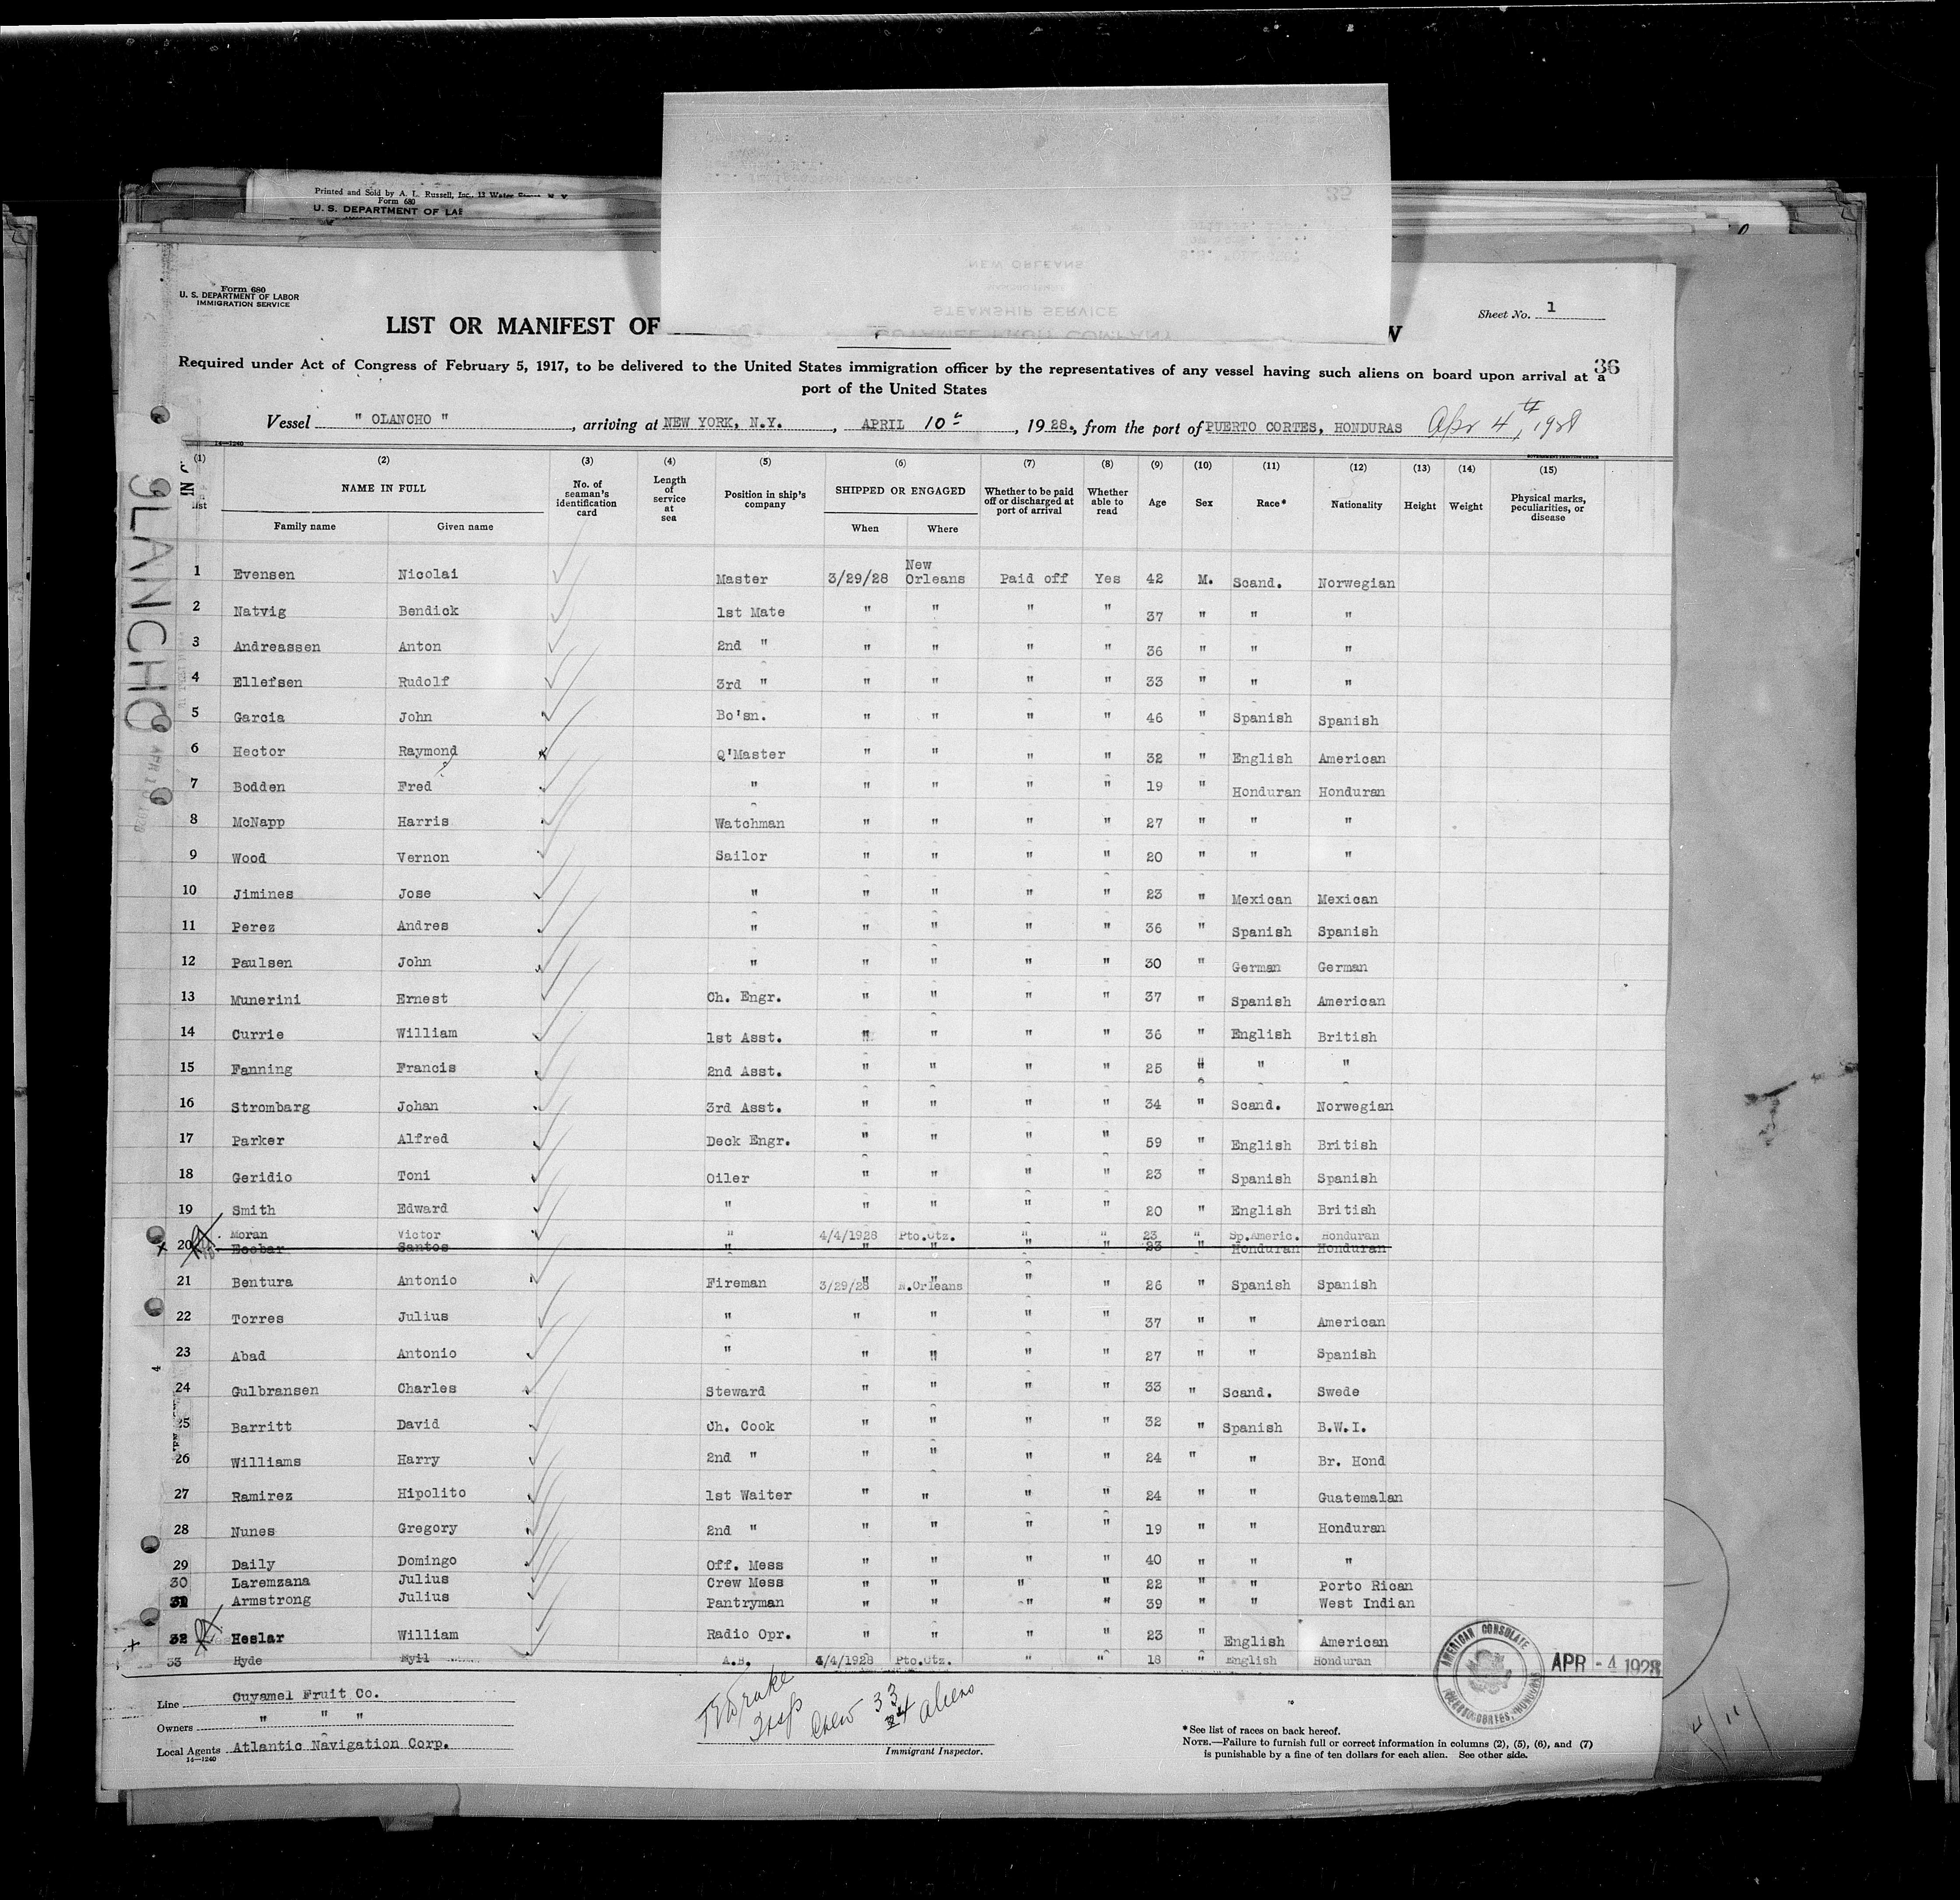 Printed and Sold by A. L. Russell, Inc., 13 Water
Form 680
U. S. DEPARTMENT OF LA
Form 680
U. S. DEPARTMENT OF LABOR
IMMIGRATION SERVICE
NEW ORLEANS
STEAMSHIP SERVICE
CUYAMEL FRUIT COMPANY
LIST OR MANIFEST OF
W
Sheet No. 1
36
Required under Act of Congress of February 5, 1917, to be delivered to the United States immigration officer by the representatives of any vessel having such aliens on board upon arrival at a
port of the United States
Vessel " OLANCHO " , arriving at NEW YORK, N.Y. , APRIL 10th , 1928., from the port of PUERTO CORTES, HONDURAS Apr 4th, 1928
14—1240
OLANCHO
(1) (2) (3) (4) (5) (6) (7) (8) (9) (10) (11) (12) (13) (14) (15)
list NAME IN FULL No. of seaman's identification card Length of service at sea Position in ship's company SHIPPED OR ENGAGED Whether to be paid off or discharged at port of arrival Whether able to read Age Sex Race* Nationality Height Weight Physical marks, peculiarities, or disease
Family name Given name When Where
1 Evensen Nicolai Master 3/29/28 New Orleans Paid off Yes 42 M. Scand. Norwegian
2 Natvig Bendick 1st Mate " " " " 37 " " "
3 Andreassen Anton 2nd " " " " " 36 " " "
4 Ellefsen Rudolf 3rd " " " " " 33 " " "
5 Garcia John Bo'sn. " " " " 46 " Spanish Spanish
6 Hector Raymond Q'Master " " " " 32 " English American
7 Bodden Fred " " " " " 19 " Honduran Honduran
8 McNapp Harris Watchman " " " " 27 " " "
9 Wood Vernon Sailor " " " " 20 " " "
10 Jimines Jose " " " " " 23 " Mexican Mexican
11 Perez Andres " " " " " 36 " Spanish Spanish
12 Paulsen John " " " " " 30 " German German
13 Munerini Ernest Ch. Engr. " " " " 37 " Spanish American
14 Currie William 1st Asst. " " " " 36 " English British
15 Fanning Francis 2nd Asst. " " " " 25 " " "
16 Strombarg Johan 3rd Asst. " " " " 34 " Scand. Norwegian
17 Parker Alfred Deck Engr. " " " " 59 " English British
18 Geridio Toni Oiler " " " " 23 " Spanish Spanish
19 Smith Edward " " " " " 20 " English British
Moran Victor " 4/4/1928 Pto.Ctz. " " 23 " Sp.Americ. Honduran
20 Ecobar Santos " " " " " 23 " Honduran Honduran
21 Bentura Antonio Fireman 3/29/28 N.Orleans " " 26 " Spanish Spanish
22 Torres Julius " " " " " 37 " " American
23 Abad Antonio " " " " " 27 " " Spanish
24 Gulbransen Charles Steward " " " " 33 " Scand. Swede
25 Barritt David Ch. Cook " " " " 32 " Spanish B.W.I.
26 Williams Harry 2nd " " " " " 24 " " Br. Hond
27 Ramirez Hipolito 1st Waiter " " " " 24 " " Guatemalan
28 Nunes Gregory 2nd " " " " " 19 " " Honduran
29 Daily Domingo Off. Mess " " " " 40 " " "
30 Laremzana Julius Crew Mess " " " " 22 " " Porto Rican
31 Armstrong Julius Pantryman " " " " 39 " " West Indian
32 Heslar William Radio Opr. " " " " 23 " English American
33 Hyde A.B. 4/4/1928 Pto.Ctz. " " 18 " English Honduran
AMERICAN CONSULATE
PUERTO CORTES, HONDURAS
APR - 4 1928
Line Cuyamel Fruit Co.
Owners " " "
Local Agents Atlantic Navigation Corp.
14—1240
Crew 33
24 aliens
Immigrant Inspector.
* See list of races on back hereof.
NOTE.—Failure to furnish full or correct information in columns (2), (5), (6), and (7)
is punishable by a fine of ten dollars for each alien. See other side.